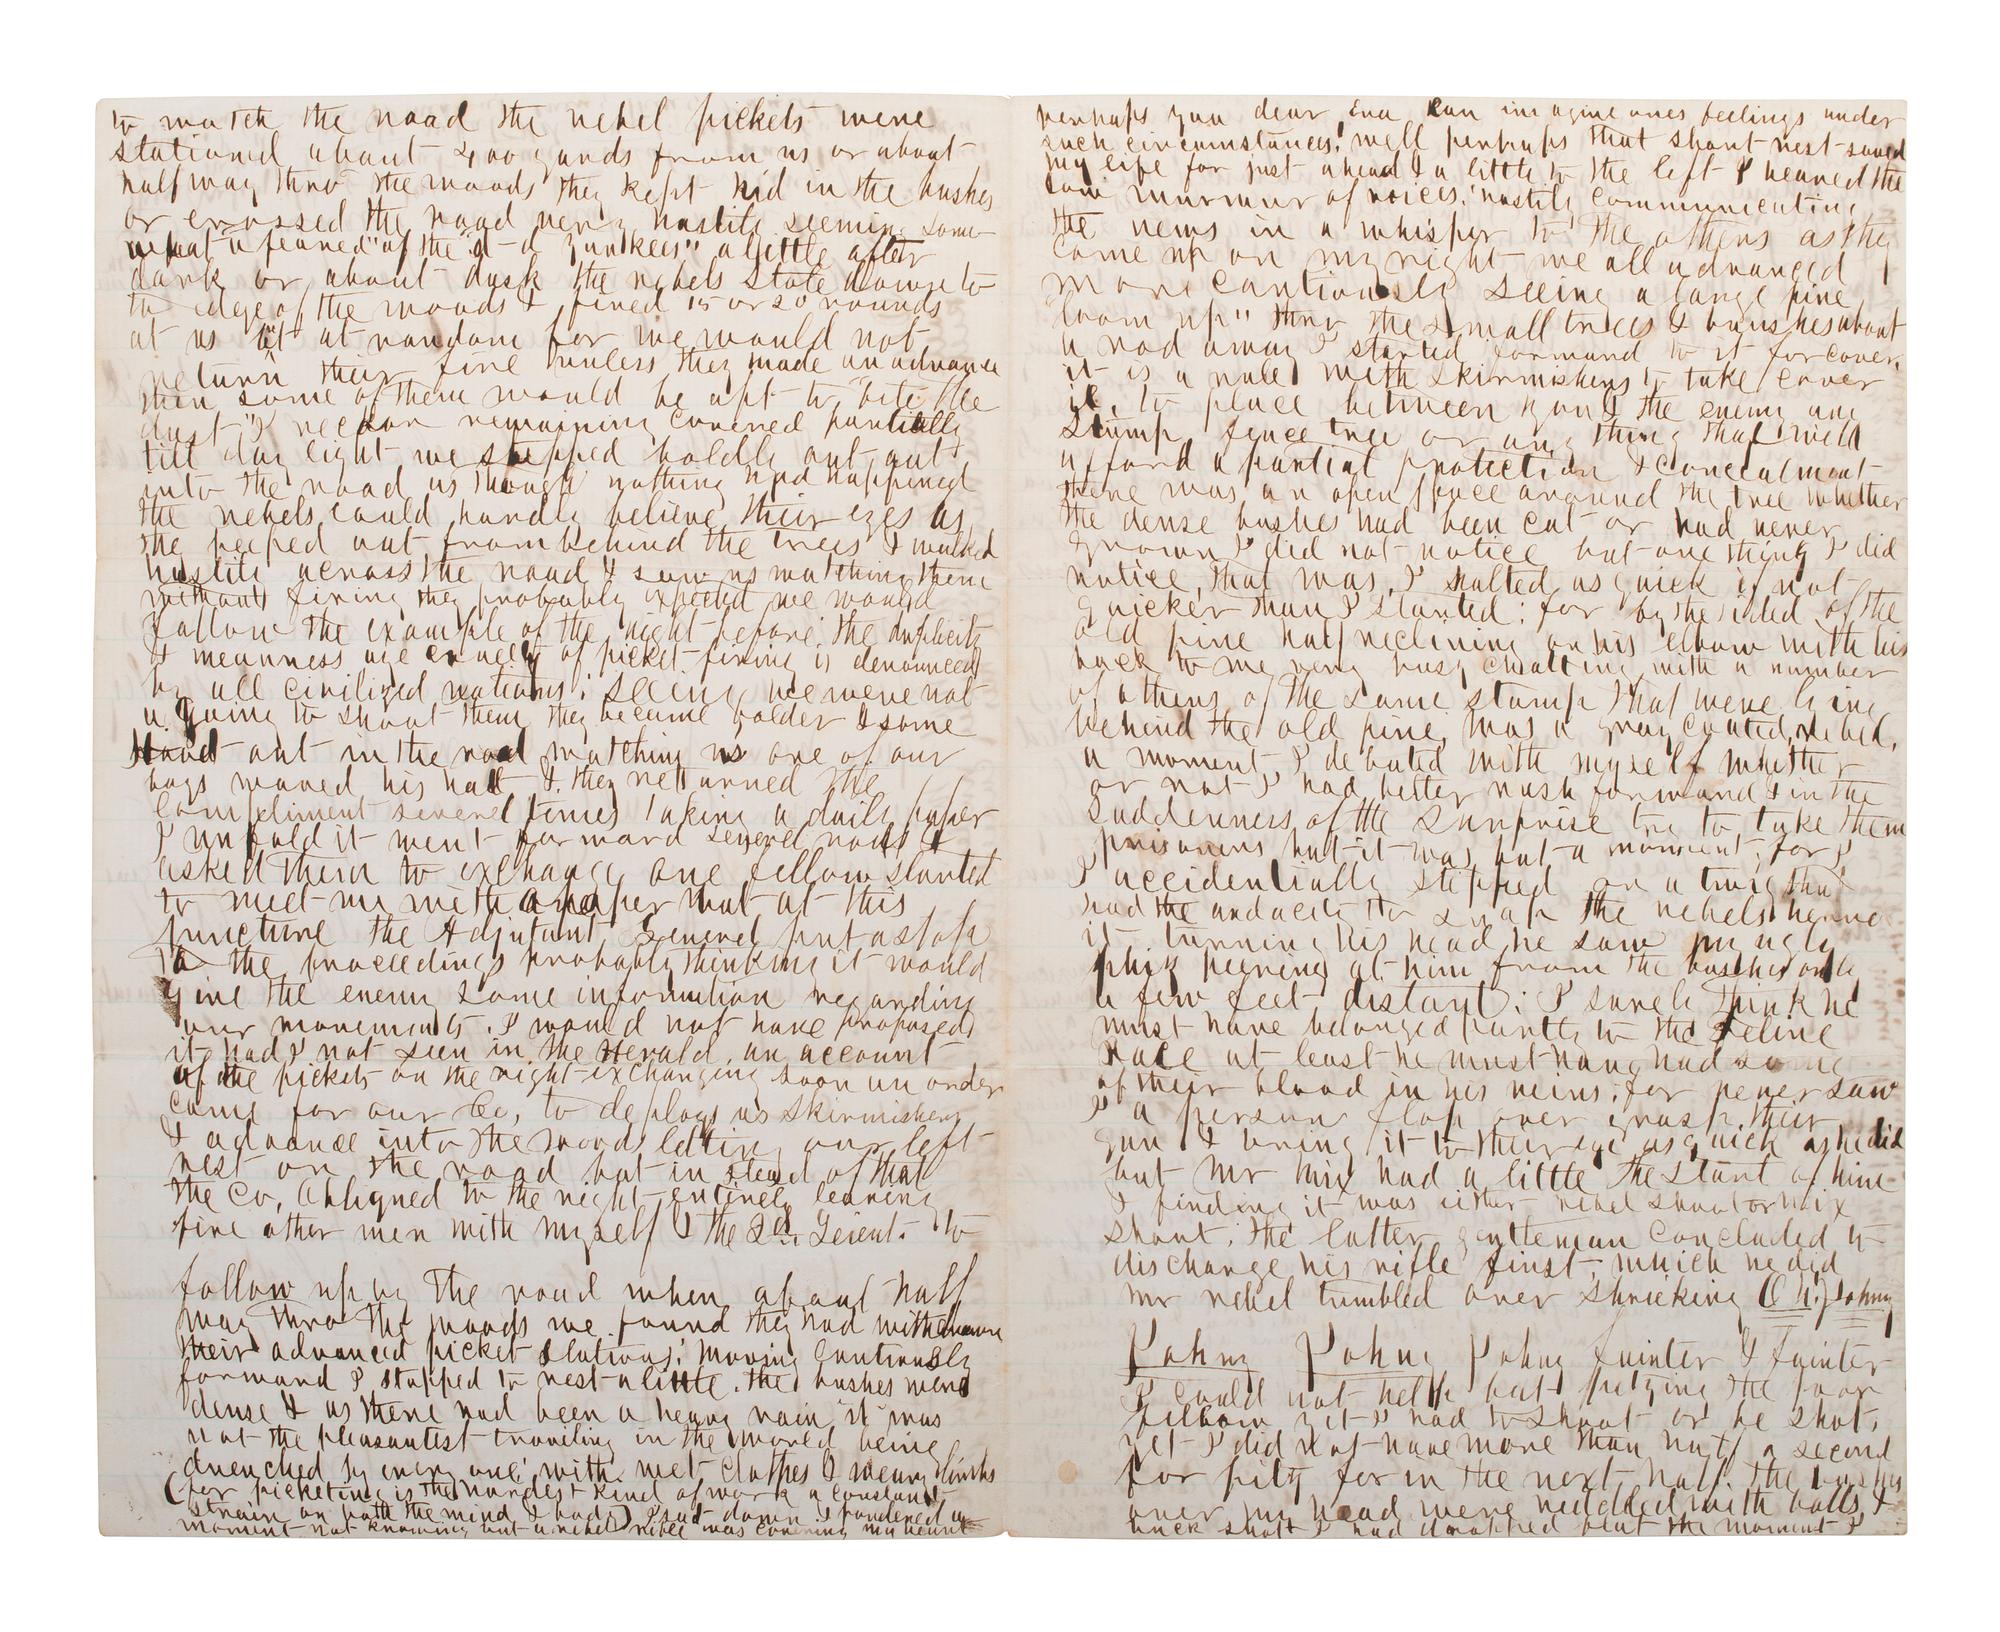 to watch the road the rebel pickets were
stationed about 400 yards from us or about
half way thro the woods they kept hid in the bushes
or crossed the road very hastily seeming some
what afeared "of the d-d yankees" a little after
dark or about dusk the rebels stole down to
the edge of the woods & fired 15 or 20 rounds
at us at random for we would not
return their fire unless they made an advance
then some of them would be apt to "bite the
dust," I reckon remaining covered partially
till day light we stepped boldly out
into the road as though nothing had happened
the rebels could hardly believe their eyes as
the peeped out from behind the trees & walked
hastily across the road & saw us watching them
without firing they probably expected we would
follow the example of the night before. the duplicity
& meanness aye cruelty of picket firing is denounced
by all civilized nations; seeing we were not
a going to shoot them they became bolder & some
stood out in the road watching us one of our
boys waved his hat & they returned the
compliment several times taking a daily paper
I unfold it went forward several rods &
asked them to exchange one fellow started
to meet me with a paper but at this
juncture the Adjutant General put a stop
to the proceedings probably thinking it would
give the enemy some information regarding
our movements. I would not have proposed
it had I not seen in the Herald, an account
of the pickets on the right exchanging soon an order
came for our Co, to deploy as skirmishers
& advance into the woods letting our left
rest on the road but in stead of that
the Co, obliqued to the right entirely leaving
five other men with myself & the 2d Serient. to
follow up by the road when about half
way thro the woods we found they had withdrawn
their advanced picket stations; moving cautiously
forward I stopped to rest a little. the bushes were
dense & as there had been a heavy rain it was
not the pleasantest traveling in the world being
drenched by every one; with wet clothes & weary limbs
(for picketing is the hardest kind of work a constant
strain on both the mind & body) I sat down & pondered a
moment not knowing but a rebel rifle was covering my heart
perhaps you dear Eva can imagine ones feelings under
such circumstances; well perhaps that short rest saved
my life for just ahead & a little to the left I heared the
low murmur of voices; hastily communicating
the news in a whisper to the others as they
come up on my right we all advanced
more cautiously seeing a large pine
"loom up" thro the small trees & bushes about
a rod away I started forward to it for cover,
it is a rule with skirmishers to take cover
ie, to place between you & the enemy any
stump, fence tree or any thing that will
afford a partial protection & concealment
there was an open space around the tree whether
the dense bushes had been cut or had never
grown I did not notice but one thing I did
notice, that was, I halted as quick if not
quicker than I started; for by the sided of the
old pine half reclining on his elbow with his
back to me very busy chatting with a number
of others of the same stamp that were lying
behind the old pine, was a gray coated rebel,
a moment I debated with myself whether
or not I had better rush forward & in the
suddenness of the surprise try to take them
prisoners but it was but a moment; for I
accidentially stepped on a twig that
had the audacity to snap the rebels heard
it turning his head he saw my ugly
phiz peering at him from the bushes only
a few feet distant; I surely think he
must have belonged partly to the Feline
Race at least he must have had some
of their blood in his veins; for never saw
I a person flop over grasp their
gun & bring it to their eye as quick as he did
but Mr Mix had a little the start of him
& finding it was either rebel shoot or Mix
shoot, the latter gentleman concluded to
discharge his rifle first, which he did
Mr rebel tumbled over shrieking O h! Johny
Johny Johny Johny fainter & fainter
I could not help but pitying the poor
fellow yet I had to shoot or be shot,
yet I did not have more than half a second
for pity for in the next half the bushes
over my head were riddled with balls &
buck shot I had dropped flat the moment I